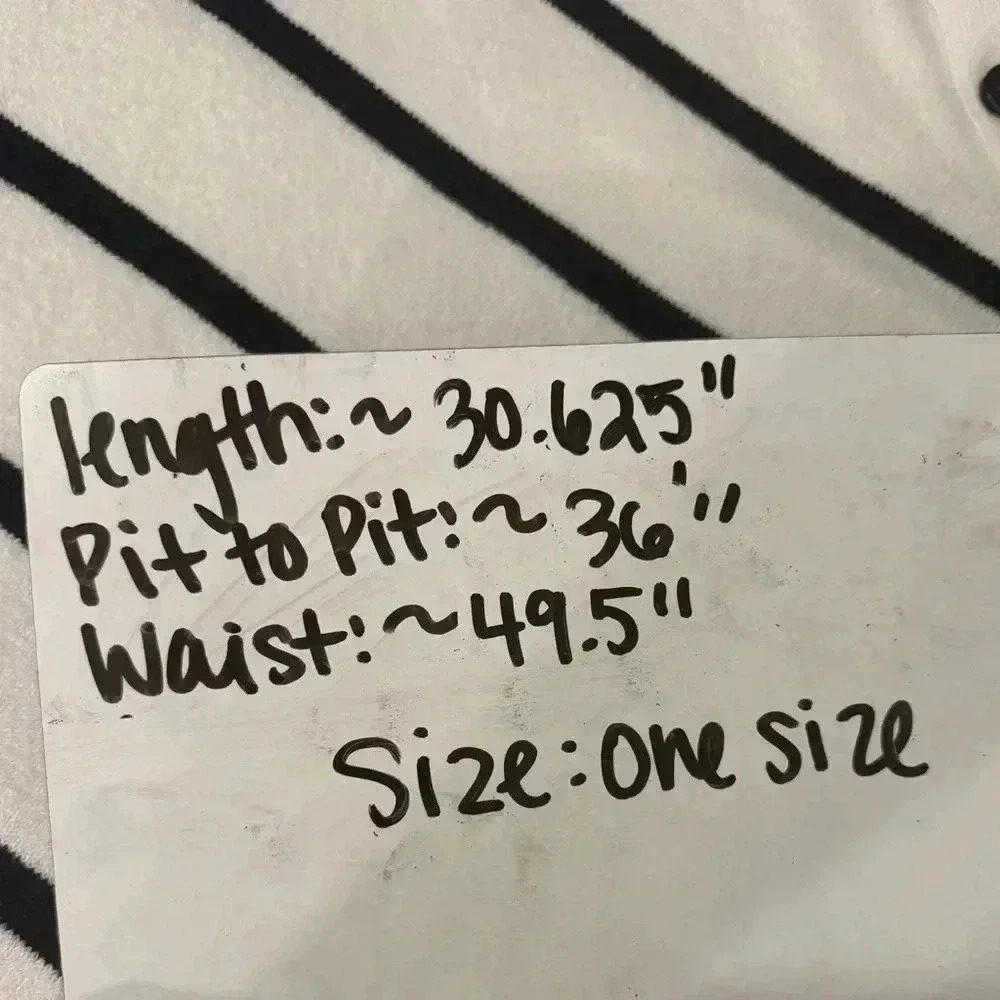 length:~ 30.625"
Pit to Pit:~ 36"
Waist:~49.5"
Size: one size